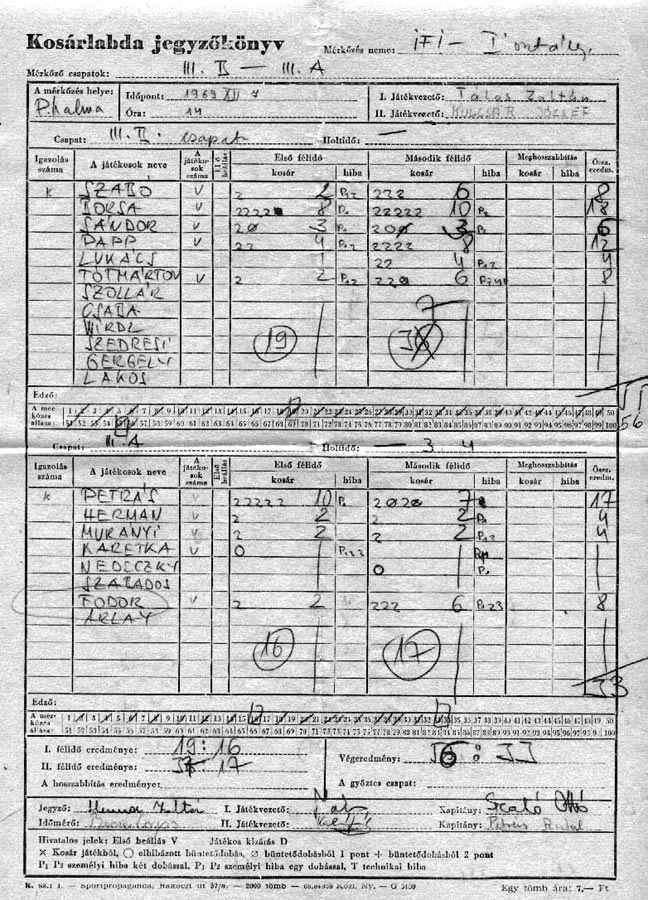 Kosárlabda jegyzőkönyv Mérkőzés neme: IFI – I osztály.
Mérkőző csapatok: III. B — III. A
A mérkőzés helye: Időpont: 1969 XII 7 I. Játékvezető: Tálas Zoltán
P. halma Óra: 14 II. Játékvezető: KULCSÁR JÓZSEF
Csapat: III. B. csapat Holtidő: —
Igazolás száma A játékosok neve A játékosok száma Első beállás Első félidő Második félidő Meghosszabbítás Össz. eredm.
kosár hiba kosár hiba
K SZABÓ V 2 2 P12 222 6 8
BORSA V 2222 8 P1 22222 10 P2 18
SÁNDOR V 20 3 P1 20 3 P1 6
PAPP V 22 4 P12 2222 8 12
LUKÁCS 22 4 P12 4
V 2 2 P12 220 6 8
SZOLLÁR 7
CSABA
WIRDL 19
SZEDRESI
GERGELY
LAKOS
Edző: 55
A mérkőzés állása: 1 2 3 4 5 6 7 8 9 10 11 12 13 14 15 16 17 18 19 20 21 22 23 24 25 26 27 28 29 30 31 32 33 34 35 36 37 38 39 40 41 42 43 44 45 46 47 48 49 50
51 52 53 54 55 56 57 58 59 60 61 62 63 64 65 66 67 68 69 70 71 72 73 74 75 76 77 78 79 80 81 82 83 84 85 86 87 88 89 90 91 92 93 94 95 96 97 98 99 100 56
Csapat: III. A Holtidő: — 3 4
Igazolás száma A játékosok neve A játékosok száma Első beállás Első félidő Második félidő Meghosszabbítás Össz. eredm.
kosár hiba kosár hiba
K PETRÁS V 22222 10 P1 2020 7 17
HERMAN V 2 2 2 2 P1 4
MURÁNYI V 2 2 2 2 P12 4
KARETKA V 0 P122
NEDECZKY 0 P1
SZABADOS
FODOR V 2 2 222 6 P123 8
ÁRLAY
16 17
33
Edző:
A mérkőzés állása: 1 2 3 4 5 6 7 8 9 10 11 12 13 14 15 16 17 18 19 20 21 22 23 24 25 26 27 28 29 30 31 32 33 34 35 36 37 38 39 40 41 42 43 44 45 46 47 48 49 50
51 52 53 54 55 56 57 58 59 60 61 62 63 64 65 66 67 68 69 70 71 72 73 74 75 76 77 78 79 80 81 82 83 84 85 86 87 88 89 90 91 92 93 94 95 96 97 98 99 100
I. félidő eredménye: 19:16 Végeredmény:
II. félidő eredménye: 17
A hosszabbítás eredménye: A győztes csapat:
Jegyző: I. Játékvezető: Kapitány: Szabó Ottó
Időmérő: II. Játékvezető: Kapitány: Petrás
Hivatalos jelek: Első beállás V Játékos kizárás D
× Kosár játékból, ○ elhibázott büntetődobás, ∅ büntetődobásból 1 pont + büntetődobásból 2 pont
P1 P2 személyi hiba két dobással, P1 P2 személyi hiba egy dobással, T technikai hiba
K. sz.: 1. — Sportpropaganda, Rákóczi út 57/a. — 2000 tömb — Közl. NY. — Egy tömb ára: 7,— Ft